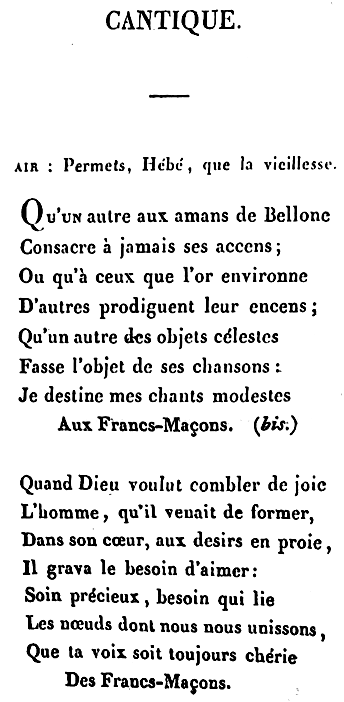 CANTIQUE.
AIR : Permets, Hébé, que la vieillesse.
QU'UN autre aux amans de Bellone
Consacre à jamais ses accens ;
Ou qu'à ceux que l'or environne
D'autres prodiguent leur encens ;
Qu'un autre des objets célestes
Fasse l'objet de ses chansons :
Je destine mes chants modestes
Aux Francs-Maçons. (bis.)
Quand Dieu voulut combler de joie
L'homme, qu'il venait de former,
Dans son cœur, aux desirs en proie,
Il grava le besoin d'aimer :
Soin précieux, besoin qui lie
Les nœuds dont nous nous unissons,
Que ta voix soit toujours chérie
Des Francs-Maçons.